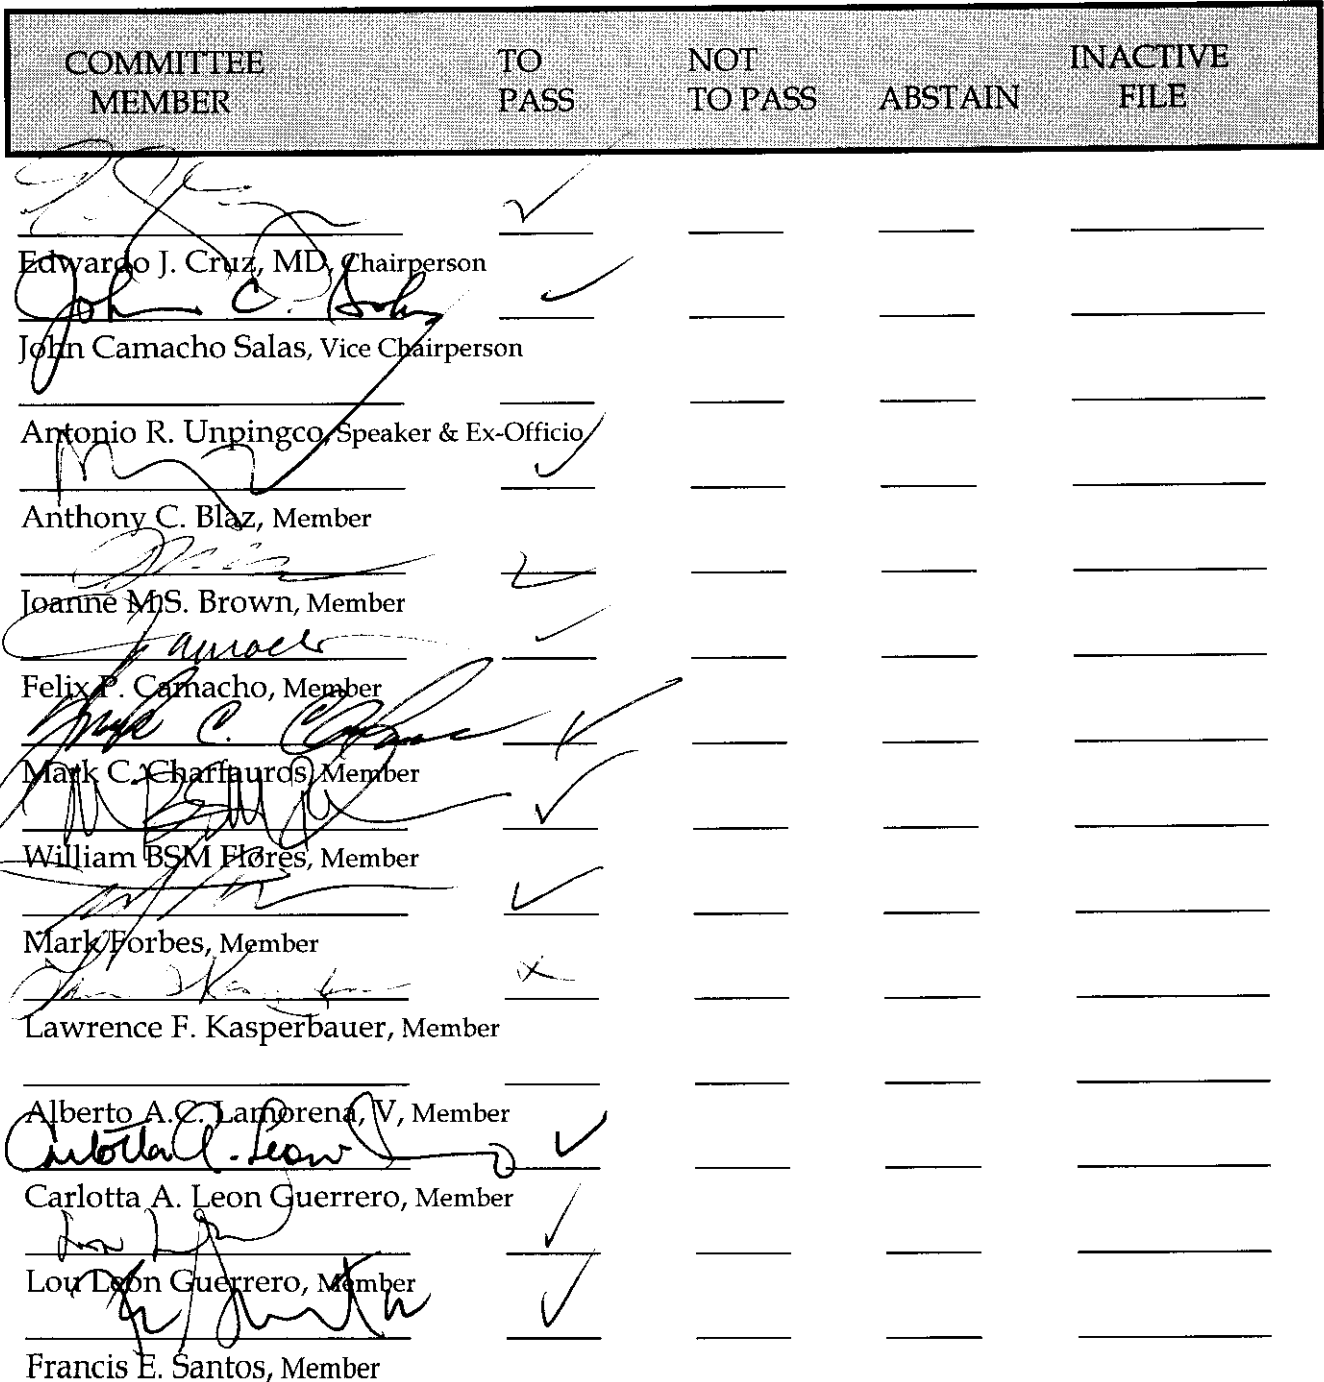 COMMITTEE MEMBER TO PASS NOT TO PASS ABSTAIN INACTIVE FILE
✓
Edwardo J. Cruz, MD, Chairperson
John C. Salas ✓
John Camacho Salas, Vice Chairperson
Antonio R. Unpingco, Speaker & Ex-Officio
✓
Anthony C. Blaz, Member
✓
Joanne M.S. Brown, Member
Camacho ✓
Felix P. Camacho, Member
Mark C. ✓
Mark C. Charfauros, Member
✓
William BSM Flores, Member
✓
Mark Forbes, Member
x
Lawrence F. Kasperbauer, Member
Alberto A.C. Lamorena, V, Member
Carlotta A. Leon ✓
Carlotta A. Leon Guerrero, Member
Lou ✓
Lou Leon Guerrero, Member
✓
Francis E. Santos, Member